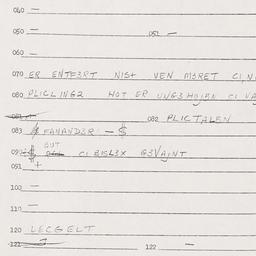 040 —
050 — 051 —
060 —
070 ER ENTF3RT NIST VEN M3RET CI,N
080 PLICLING2 HOT ER UNG3HOJBN CI VA
081 — 082 PLICTALEN
083 FAHAND3R — $
090 $ OUT CI BISL3X G3VAJNT
091 +
100 —
110 —
120 LECGELT
121 122 —